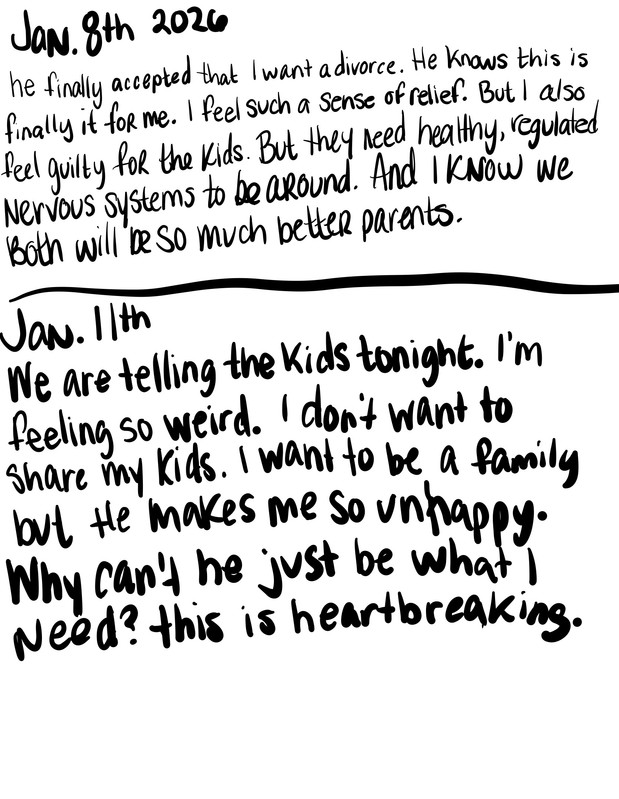 Jan. 8th 2026
he finally accepted that I want a divorce. He knows this is
finally it for me. I feel such a sense of relief. But I also
feel guilty for the kids. But they need healthy, regulated
nervous systems to be around. And I know we
both will be so much better parents.
Jan. 11th
We are telling the kids tonight. I'm
feeling so weird. I don't want to
share my kids. I want to be a family
but He makes me so unhappy.
Why can't he just be what I
need? this is heartbreaking.